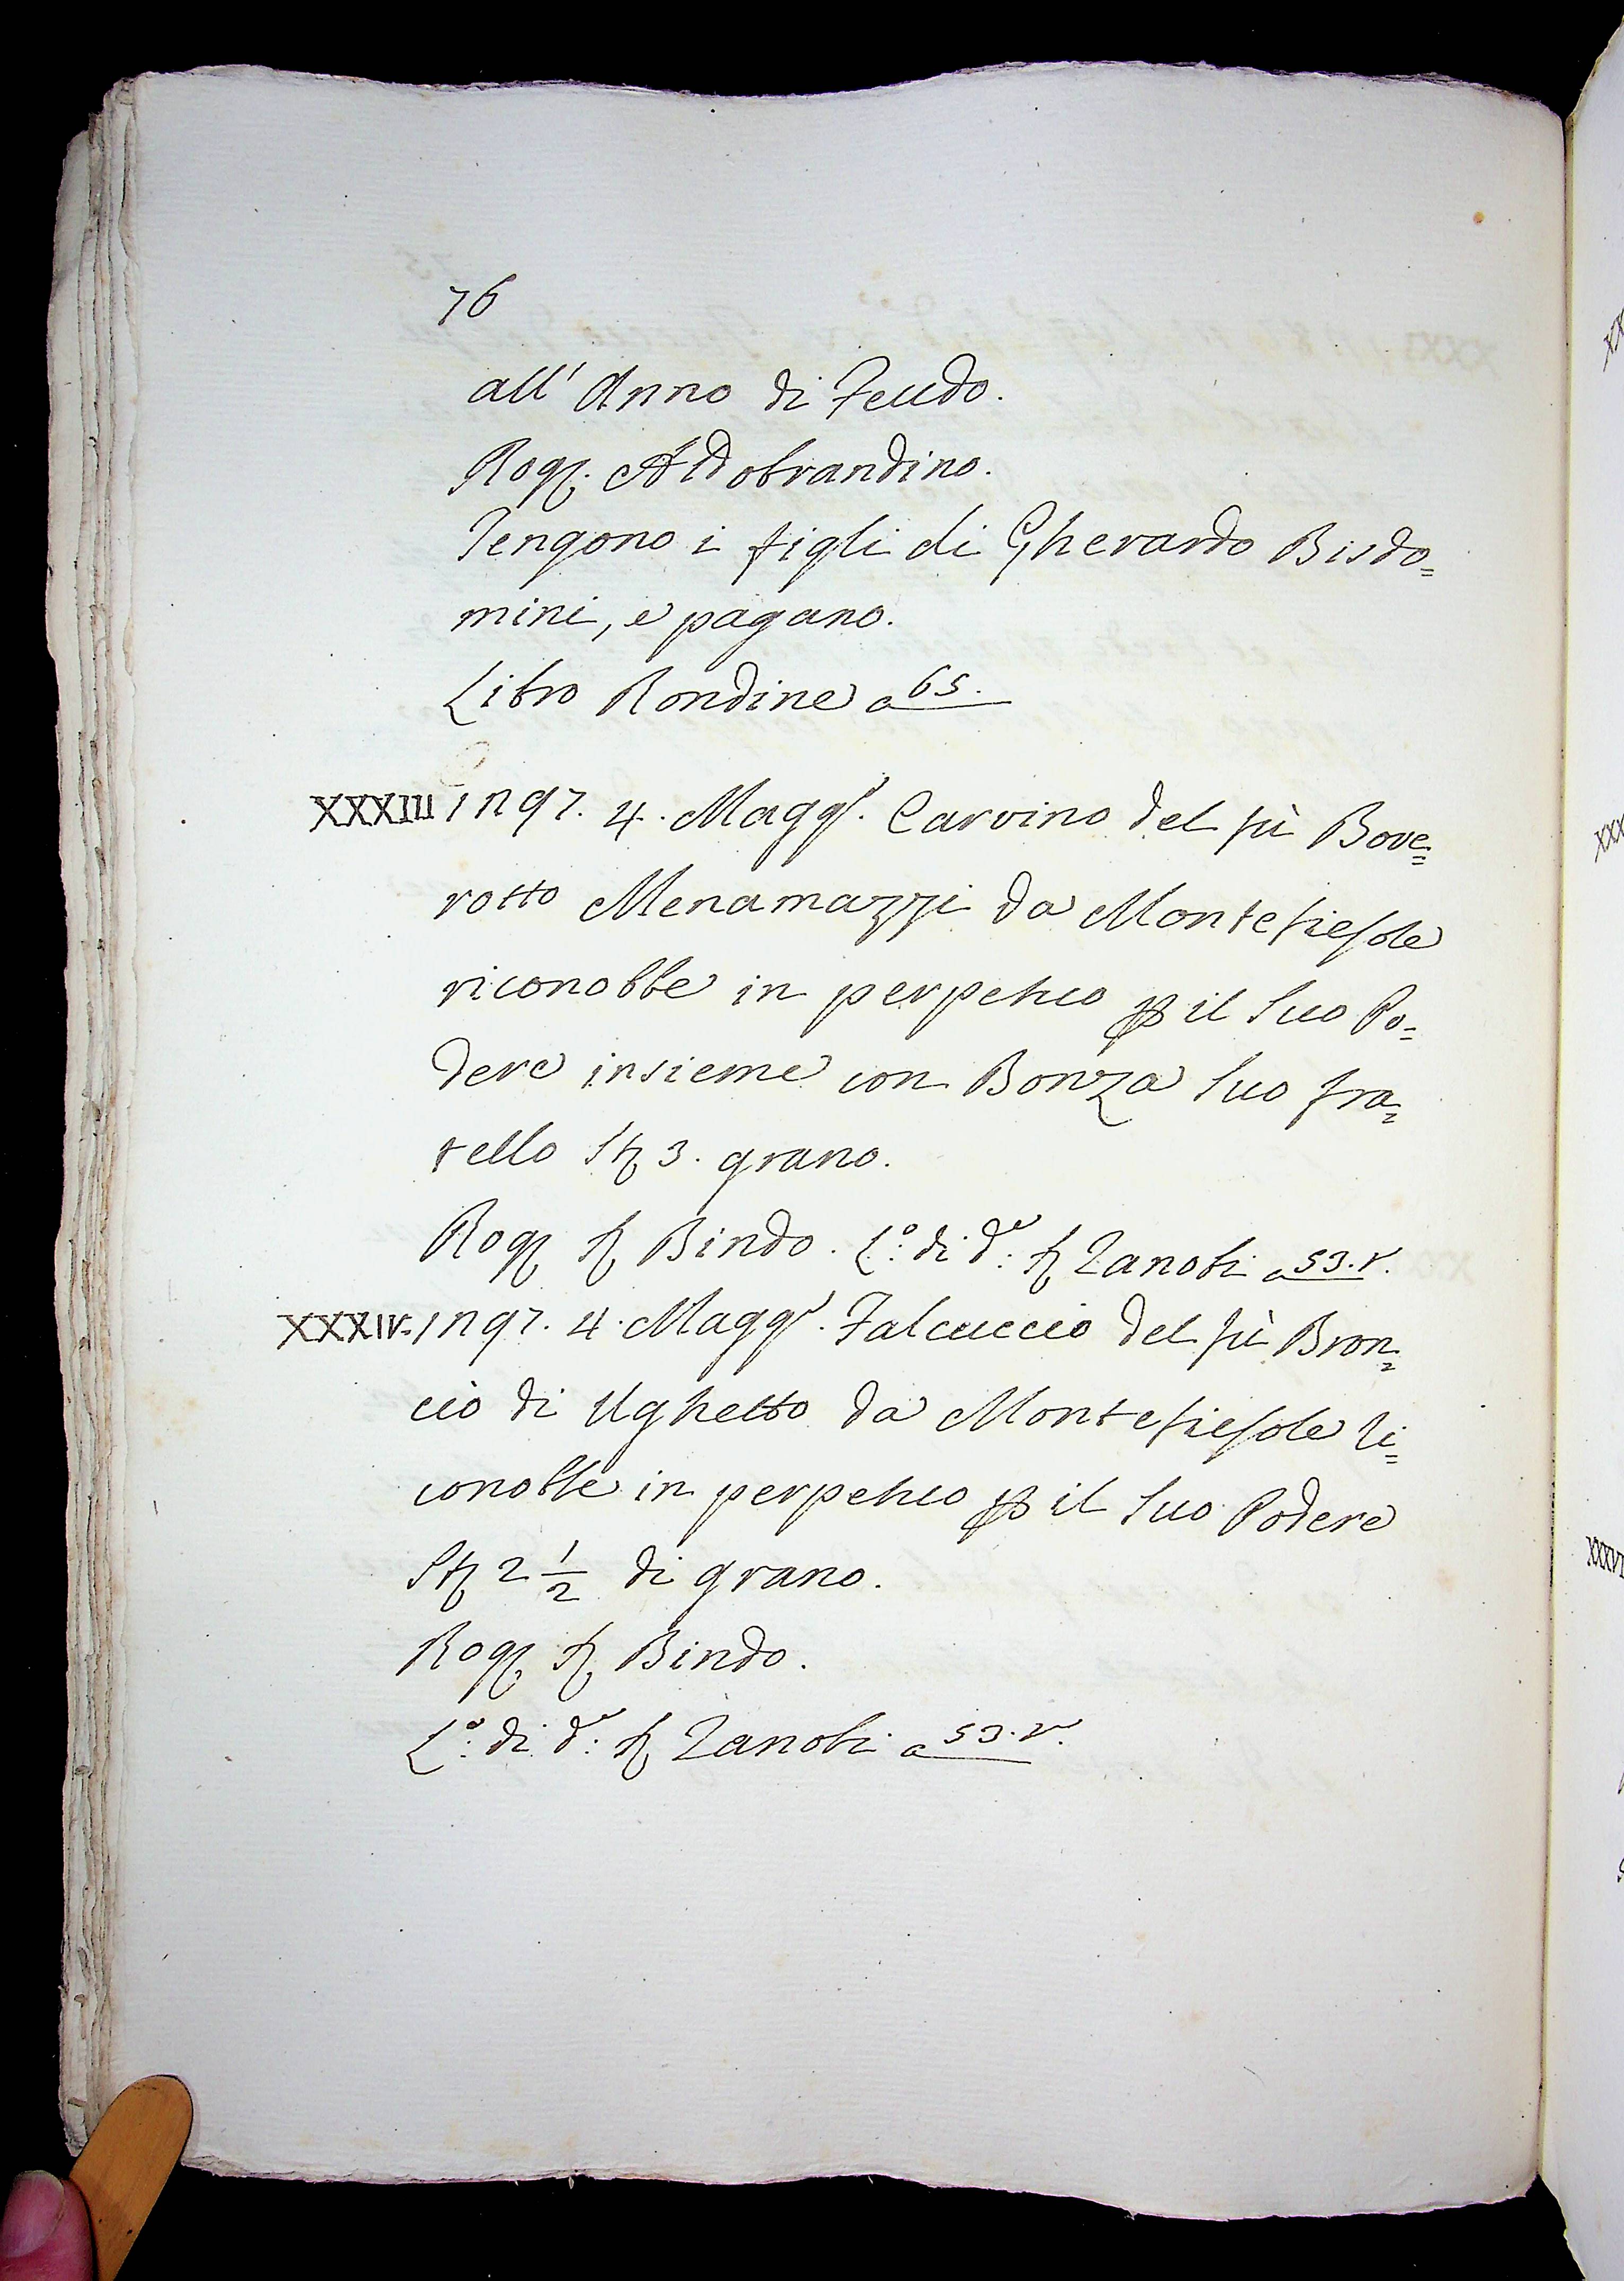 76
all' Anno di Feudo.
Rog. Aldobrandino.
Tengono i figli di Gherardo Bisdo=
mini, e pagano.
Libro Rondine a 65.
XXXIII 1297. 4. Magg.º Carvino del fù Bove=
rotto Menamazzi da Montefiesole
riconobbe in perpetuo p il suo Po=
dere insieme con Bonza suo fra=
tello St 3. grano.
Rog S Bindo. L.º di d.º S Zanobi a 53.r.
XXXIV. 1297. 4. Magg.º Falcuccio del fù Bron=
cio di Ughetto da Montefiesole ri=
conobbe in perpetuo p il suo Podere
St 2 1/2 di grano.
Rog S Bindo.
L.º di d.º S Zanobi a 53.r.